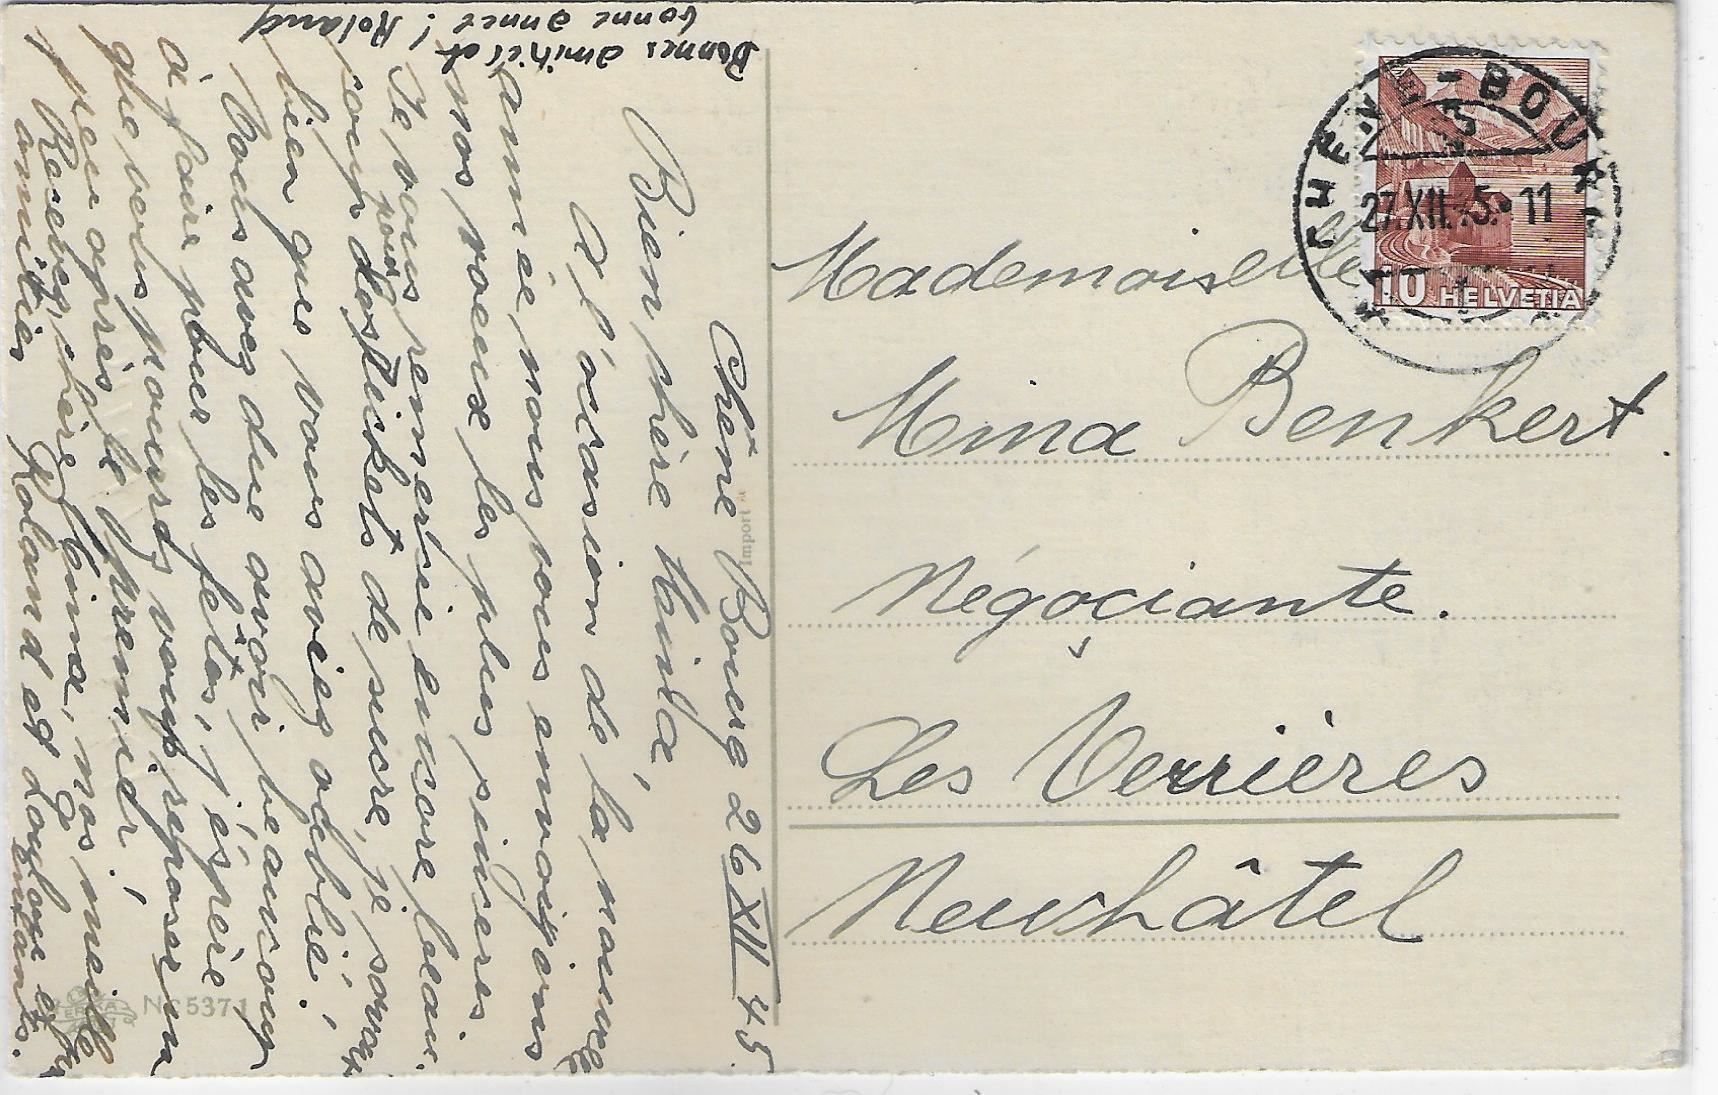 Chêne Bourg 26 XII 45.
Bien chère Mina,
A l'occasion de la nouvelle
année, nous vous envoyons
nos voeux les plus sincères
Je vous remercie encore beau-
coup pour les tickets de sucre, je
bien que vous aviez oublié!
Vous avez due avoir beaucoup
à faire pour les fêtes, j'espère
que vous pourrez vous reposer un
peu après le premier!
Recevez, chère Mina, nos meil-
amitiés Roland et
enfants.
Bonnes amitiés et
bonne année! Roland
CHENE-BOU
27.XII. 5.-11
10 HELVETIA
Mademoiselle
Mina Benkert
Négociante.
Les Verrières
Neuchâtel
Import
ERIKA
Nr 5371